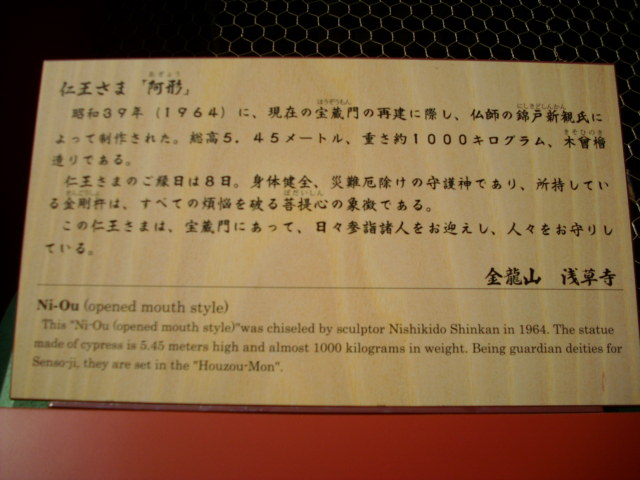 仁王さま「阿形」
昭和39年(1964)に、現在の宝蔵門の再建に際し、仏師の錦戸新観氏に
よって制作された。総高5.45メートル、重さ約1000キログラム、木曾檜
造りである。
仁王さまのご縁日は8日。身体健全、災難厄除けの守護神であり、所持してい
る金剛杵は、すべての煩悩を破る菩提心の象徴である。
この仁王さまは、宝蔵門にあって、日々参詣諸人をお迎えし、人々をお守りし
ている。
金龍山 浅草寺
Ni-Ou (opened mouth style)
This "Ni-Ou (opened mouth style)"was chiseled by sculptor Nishikido Shinkan in 1964. The statue
made of cypress is 5.45 meters high and almost 1000 kilograms in weight. Being guardian deities for
Senso-ji, they are set in the "Houzou-Mon".